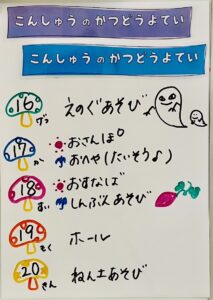 こんしゅうのかつどうよてい
こんしゅうのかつどうよてい
16 げつ えのぐあそび
17 か おさんぽ
おへや(たいそう♪)
18 すい おすなば
しんぶんあそび
19 もく ホール
20 きん ねん土あそび